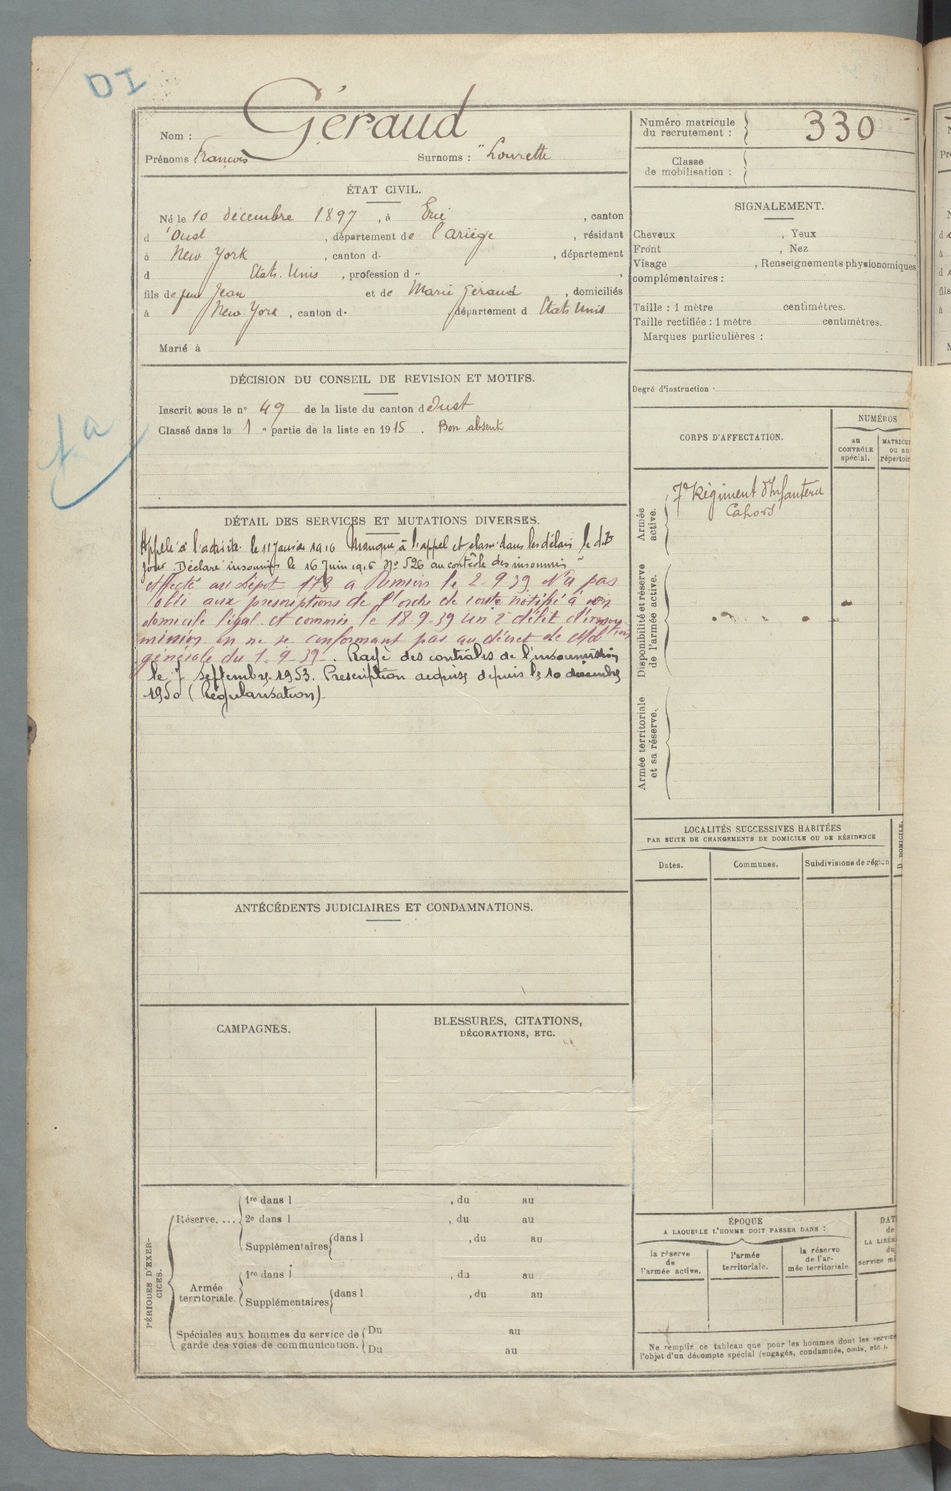 DI
Nom : Géraud
Prénoms François Surnoms : "Lourette
Numéro matricule du recrutement : 330
Classe de mobilisation :
ÉTAT CIVIL.
Né le 10 décembre 1897, à Ercé, canton
d'Oust, département de l'Ariège, résidant
à New York, canton d-, département
d États-Unis, profession d "
fils de feu Jean et de Marie Géraud, domiciliés
à New York, canton d- département d États Unis
Marié à
SIGNALEMENT.
Cheveux , Yeux
Front , Nez
Visage , Renseignements physionomiques
complémentaires :
Taille : 1 mètre centimètres.
Taille rectifiée : 1 mètre centimètres.
Marques particulières :
Degré d'instruction
DÉCISION DU CONSEIL DE REVISION ET MOTIFS.
Inscrit sous le n° 49 de la liste du canton d'Oust
Classé dans la 1e partie de la liste en 1915. Bon absent
DÉTAIL DES SERVICES ET MUTATIONS DIVERSES.
Appelé à l'activité le 11 Janvier 1916 Manque à l'appel et classé dans les délais le dit
jour. Déclaré insoumis le 16 Juin 1916 N° 526 au contrôle des insoumis
Affecté au Dépôt 173 a Pamiers le 2-9-39 N'a pas
obéi aux prescriptions de l'ordre de route notifié à son
domicile légal et commis le 18-9-39 un 2e délit d'insou
mission en ne se conformant pas au décret de Mobtion
générale du 1-9-39. Rayé des contrôles de l'insoumission
le 7 septembre 1953. Prescription acquise depuis le 10 décembre
1950 (Régularisation).
CORPS D'AFFECTATION.
NUMÉROS
AU CONTRÔLE spécial.
MATRICU
ou au
répertoir
Armée active.
7e Régiment d'Infanterie
Cahors
Disponibilité et réserve de l'armée active.
Armée territoriale et sa réserve.
LOCALITÉS SUCCESSIVES HABITÉES
PAR SUITE DE CHANGEMENTS DE DOMICILE OU DE RÉSIDENCE
Dates. Communes. Subdivisions de région
D. DOMICILE.
ANTÉCÉDENTS JUDICIAIRES ET CONDAMNATIONS.
CAMPAGNES.
BLESSURES, CITATIONS,
DÉCORATIONS, ETC.
PÉRIODES D'EXERCICES.
Réserve. ...
1re dans l , du au
2e dans l , du au
Supplémentaires dans l , du au
Armée territoriale.
1re dans l , du au
Supplémentaires dans l , du au
Spéciales aux hommes du service de garde des voies de communication.
Du au
Du au
ÉPOQUE
A LAQUELLE L'HOMME DOIT PASSER DANS :
la réserve de l'armée active.
l'armée territoriale.
la réserve de l'armée territoriale.
DAT
de
LA LIBÉR
du
service mi
Ne remplir ce tableau que pour les hommes dont les service
l'objet d'un décompte spécial (engagés, condamnés, omis, etc.).